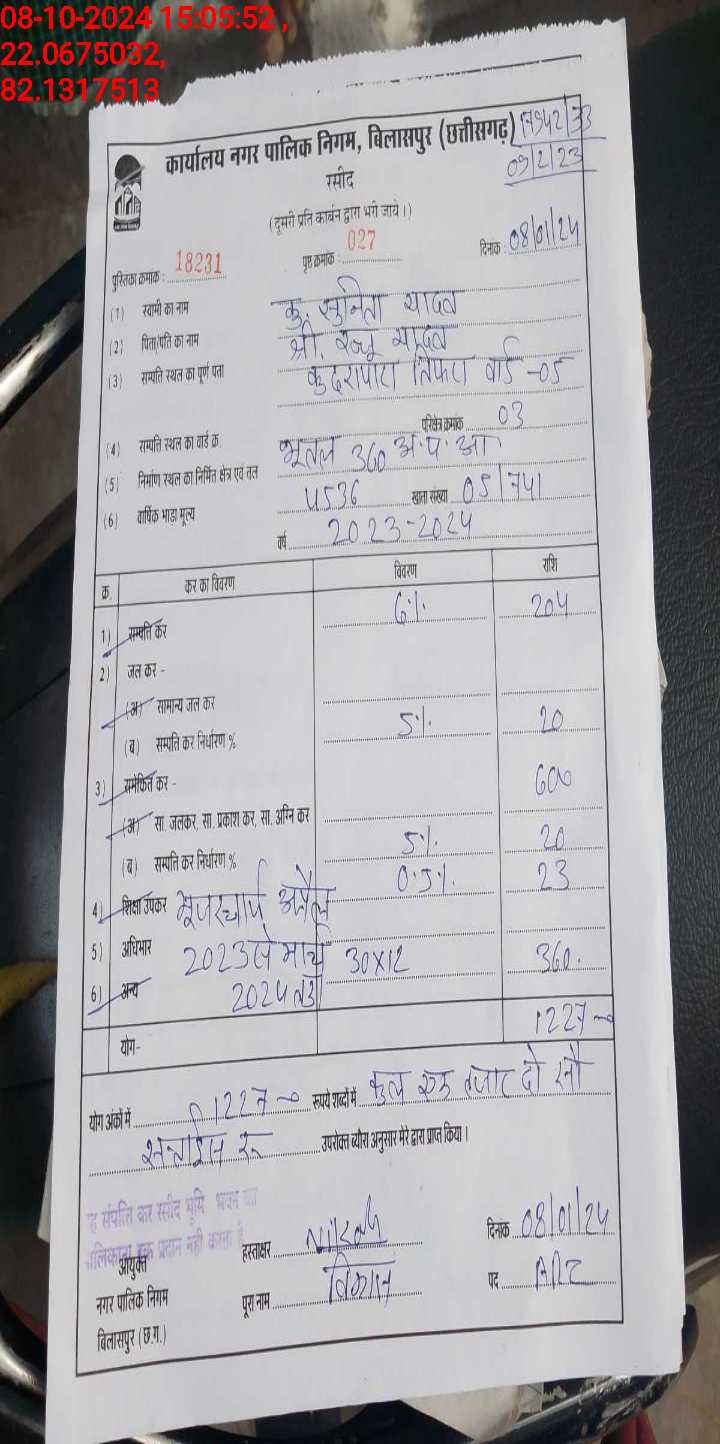 08-10-2024 15:05:52 ,
22.0675032,
82.1317513
कार्यालय नगर पालिक निगम, बिलासपुर (छत्तीसगढ़)
09/2/23
रसीद
(दूसरी प्रति कार्बन द्वारा भरी जाये।)
पुस्तिका क्रमांक : 18231 पृष्ठ क्रमांक : 027 दिनांक : 08/01/24
(1) स्वामी का नाम कु. सुनिता यादव
(2) पिता/पति का नाम श्री. रज्जू यादव
(3) सम्पति स्थल का पूर्ण पता कुदरापारा तिफरा वार्ड -05
परिक्षेत्र क्रमांक 03
(4) सम्पति स्थल का वार्ड क्र.
(5) निर्माण स्थल का निर्मित क्षेत्र एवं तल भूतल 360 अ.प.आ
(6) वार्षिक भाड़ा मूल्य 4536 खाता संख्या 05/741
वर्ष 2023-2024
क्र. कर का विवरण विवरण राशि
1) सम्पति कर 6% 204
2) जल कर -
(अ) सामान्य जल कर
(ब) सम्पति कर निर्धारण % 5% 20
3) समेकित कर - 600
(अ) सा. जलकर, सा. प्रकाश कर, सा. अग्नि कर
(ब) सम्पति कर निर्धारण % 5% 20
4) शिक्षा उपकर 0.5% 23
यूजरचार्ज अप्रैल
5) अधिभार 2023 से मार्च 30x12 360.
6) अन्य 2024 तक
योग- 1227
योग अंकों में 1227 रूपये शब्दों में कुल एक हजार दो सौ
सत्ताईस रू उपरोक्त ब्यौरा अनुसार मेरे द्वारा प्राप्त किया।
यह संपत्ति कर रसीद भूमि भवन का
मालिकाना हक प्रदान नही करता है
आयुक्त
नगर पालिक निगम
बिलासपुर (छ.ग.)
हस्ताक्षर दिनांक 08/01/24
पूरा नाम विकास पद ARI